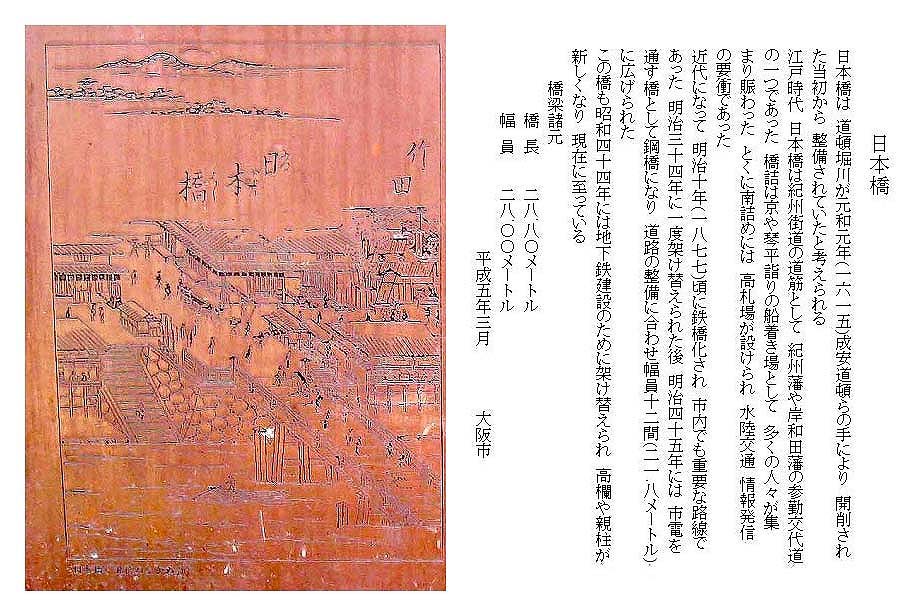 日本橋
日本橋は 道頓堀川が元和元年(一六一五)成安道頓らの手により 開削され
た当初から 整備されていたと考えられる
江戸時代 日本橋は紀州街道の道筋として 紀州藩や岸和田藩の参勤交代道
の一つであった 橋詰は京や琴平詣りの船着き場として 多くの人々が集
まり賑わった とくに南詰めには 高札場が設けられ 水陸交通 情報発信
の要衝であった
近代になって 明治十年(一八七七)頃に鉄橋化され 市内でも重要な路線で
あった 明治三十四年に一度架け替えられた後 明治四十五年には 市電を
通す橋として鋼橋になり 道路の整備に合わせ幅員十二間(二一・八メートル)
に広げられた
この橋も昭和四十四年には地下鉄建設のために架け替えられ 高欄や親柱が
新しくなり 現在に至っている
橋梁諸元
橋 長 二八・八〇メートル
幅 員 二八・〇〇メートル
平成五年三月 大阪市
橋